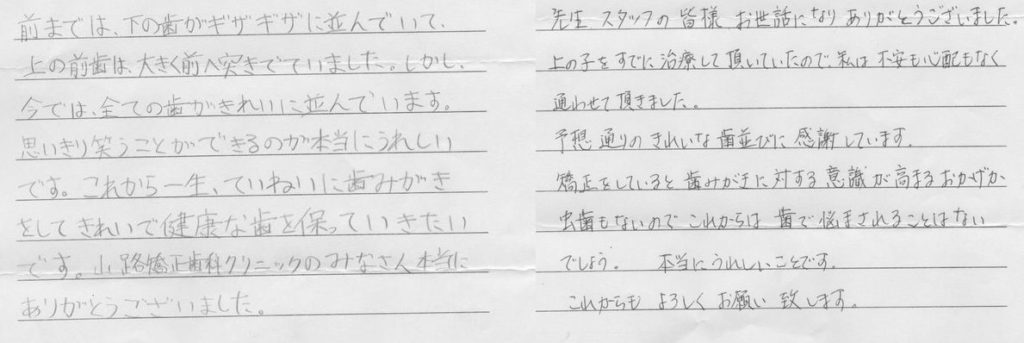 前までは、下の歯がギザギザに並んでいて、
上の前歯は、大きく前へ突きでていました。しかし、
今では、全ての歯がきれいに並んでいます。
思いきり笑うことができるのが本当にうれしい
です。これから一生、ていねいに歯みがき
をしてきれいで健康な歯を保っていきたい
です。小路矯正歯科クリニックのみなさん本当に
ありがとうございました。
先生、スタッフの皆様、お世話になりありがとうございました。
上の子をすでに治療して頂いていたので、私は不安も心配もなく
通わせて頂きました。
予想通りのきれいな歯並びに感謝しています。
矯正をしていると歯みがきに対する意識が高まるおかげか
虫歯もないのでこれからは歯で悩まされることはない
でしょう。 本当にうれしいことです。
これからもよろしくお願い致します。